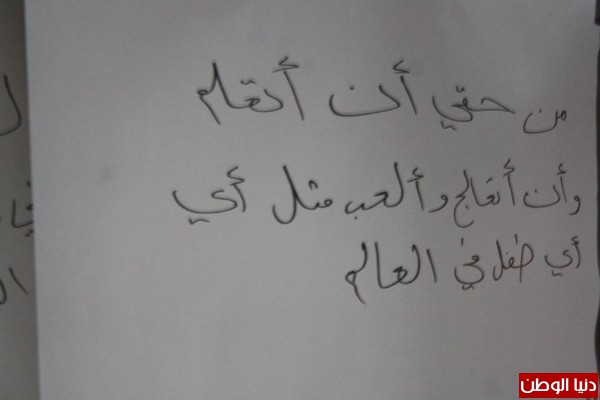 من حقي أن أتعلم
وأن أتعالج وألعب مثل أي
أي طفل في العالم
دنيا الوطن